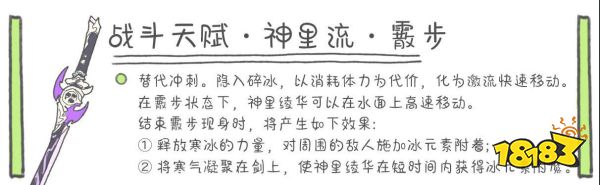 战斗天赋·神里流·霰步
替代冲刺。隐入碎冰，以消耗体力为代价，化为激流快速移动。
在霰步状态下，神里绫华可以在水面上高速移动。
结束霰步现身时，将产生如下效果：
① 释放寒冰的力量，对周围的敌人施加冰元素附着；
② 将寒气凝聚在剑上，使神里绫华在短时间内获得冰元素附魔。
18183